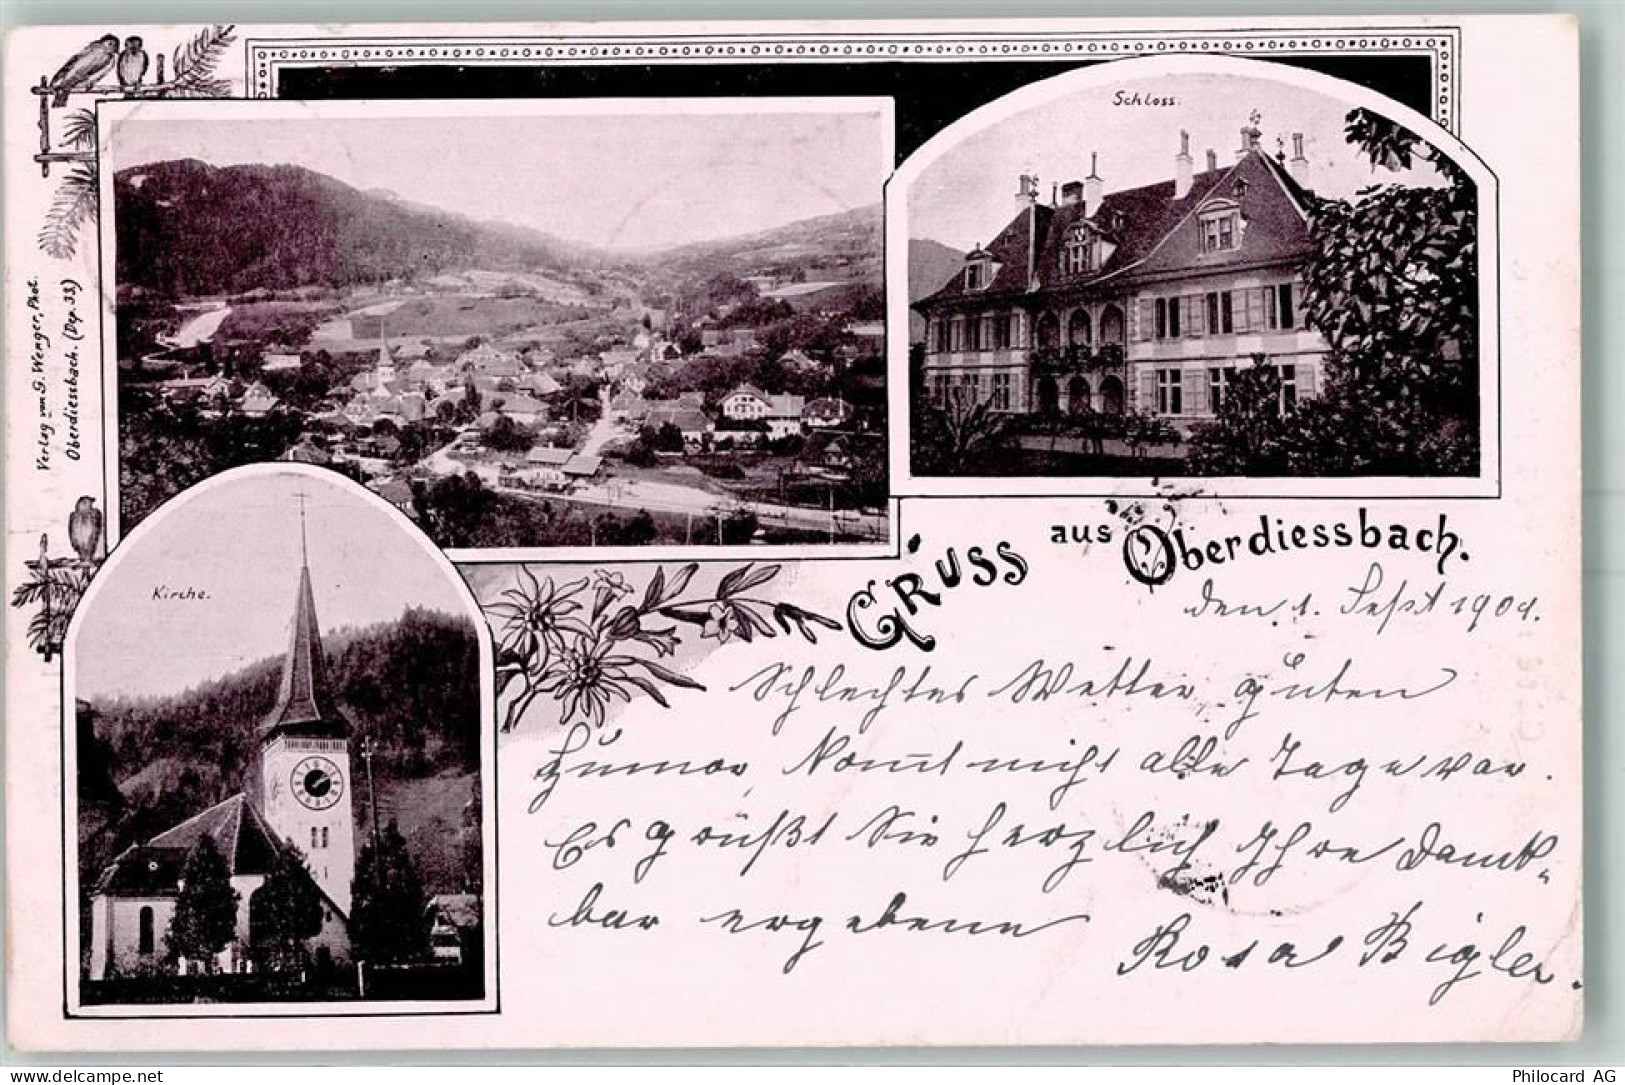 Schloss.
Verlag von G. Wenger, Phot.
Oberdiessbach. (Dep. 33)
Kirche.
Gruss aus Oberdiessbach.
den 1. Sept 1904.
Schlechtes Wetter, guten
Humor, kommt nicht alle Tage vor.
Es grüßt Sie herzlich Ihre dank-
bar ergebene
Rosa Bigler.
delcampe.net
Philocard AG